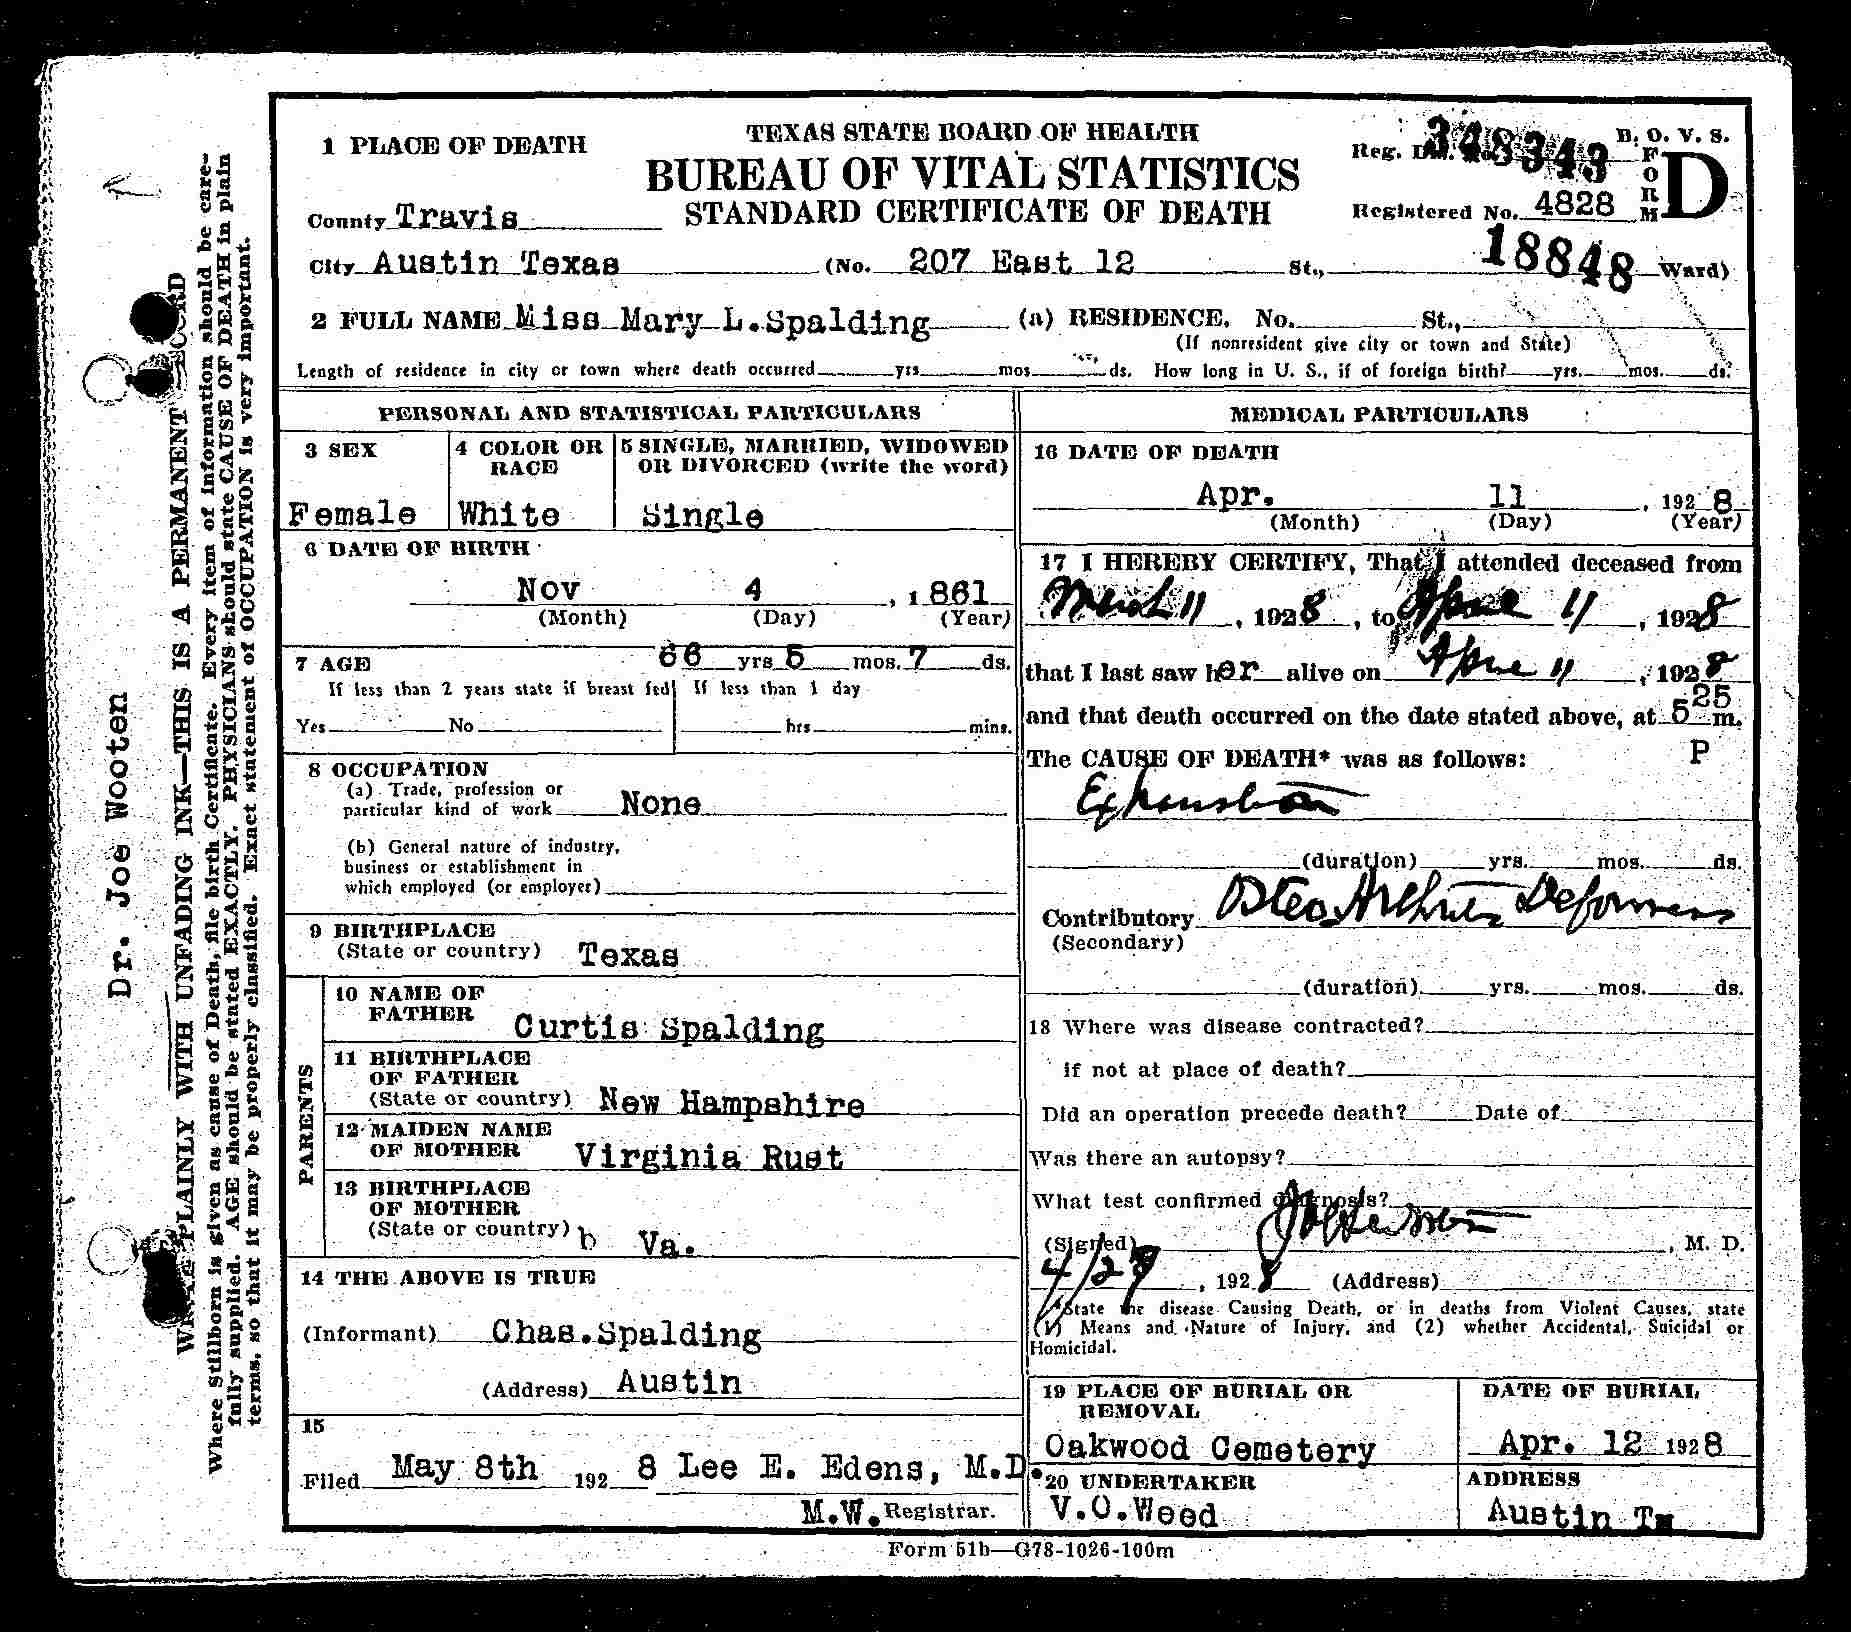 TEXAS STATE BOARD OF HEALTH
BUREAU OF VITAL STATISTICS
STANDARD CERTIFICATE OF DEATH
B. O. V. S.
FORM D
Reg. Dis. No. 348343
Registered No. 4828
18848
1 PLACE OF DEATH
County Travis
City Austin Texas (No. 207 East 12 St., Ward)
2 FULL NAME Miss Mary L.Spalding (a) RESIDENCE. No. St.,
(If nonresident give city or town and State)
Length of residence in city or town where death occurred yrs mos ds. How long in U. S., if of foreign birth? yrs. mos. ds.
PERSONAL AND STATISTICAL PARTICULARS
3 SEX
Female
4 COLOR OR RACE
White
5 SINGLE, MARRIED, WIDOWED
OR DIVORCED (write the word)
Single
6 DATE OF BIRTH
Nov 4 , 1861
(Month) (Day) (Year)
7 AGE 66 yrs 5 mos. 7 ds.
If less than 2 years state if breast fed If less than 1 day
Yes No hrs mins.
8 OCCUPATION
(a) Trade, profession or
particular kind of work None
(b) General nature of industry,
business or establishment in
which employed (or employer)
9 BIRTHPLACE
(State or country) Texas
PARENTS
10 NAME OF
FATHER Curtis Spalding
11 BIRTHPLACE
OF FATHER
(State or country) New Hampshire
12 MAIDEN NAME
OF MOTHER Virginia Rust
13 BIRTHPLACE
OF MOTHER
(State or country) b Va.
14 THE ABOVE IS TRUE
(Informant) Chas.Spalding
(Address) Austin
15
Filed May 8th 192 8 Lee E. Edens, M.D.
M.W. Registrar.
MEDICAL PARTICULARS
16 DATE OF DEATH
Apr. 11 , 192 8
(Month) (Day) (Year)
17 I HEREBY CERTIFY, That I attended deceased from
March 11 , 1928 , to April 11 , 1928
that I last saw her alive on April 11 , 1928
and that death occurred on the date stated above, at 5 25 m.
The CAUSE OF DEATH* was as follows: P
Exhaustion
(duration) yrs. mos. ds.
Contributory Osteo Arthritis Deformans
(Secondary)
(duration) yrs. mos. ds.
18 Where was disease contracted?
if not at place of death?
Did an operation precede death? Date of
Was there an autopsy?
What test confirmed diagnosis?
(Signed) , M. D.
, 192 8 (Address)
*State the disease Causing Death, or in deaths from Violent Causes, state
(1) Means and Nature of Injury, and (2) whether Accidental, Suicidal or
Homicidal.
19 PLACE OF BURIAL OR
REMOVAL
Oakwood Cemetery
DATE OF BURIAL
Apr. 12 1928
20 UNDERTAKER
V.O.Weed
ADDRESS
Austin Tx
Form 51b—G78-1026-100m
Dr. Joe Wooten
WRITE PLAINLY WITH UNFADING INK—THIS IS A PERMANENT RECORD
Where Stillborn is given as cause of Death, file birth Certificate. Every item of information should be care-
fully supplied. AGE should be stated EXACTLY. PHYSICIANS should state CAUSE OF DEATH in plain
terms, so that it may be properly classified. Exact statement of OCCUPATION is very important.